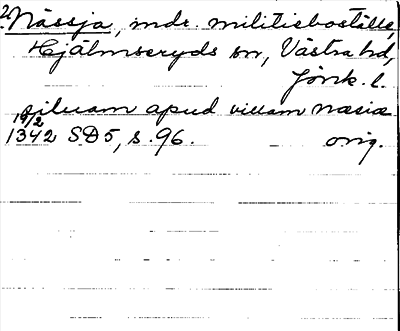 2 Nässja, mdr. militieboställe,
Hjälmseryds sn, Västra hd,
Jönk. l.
siluam apud villam næsiæ
19/2
1342 SD5, s. 96. orig.